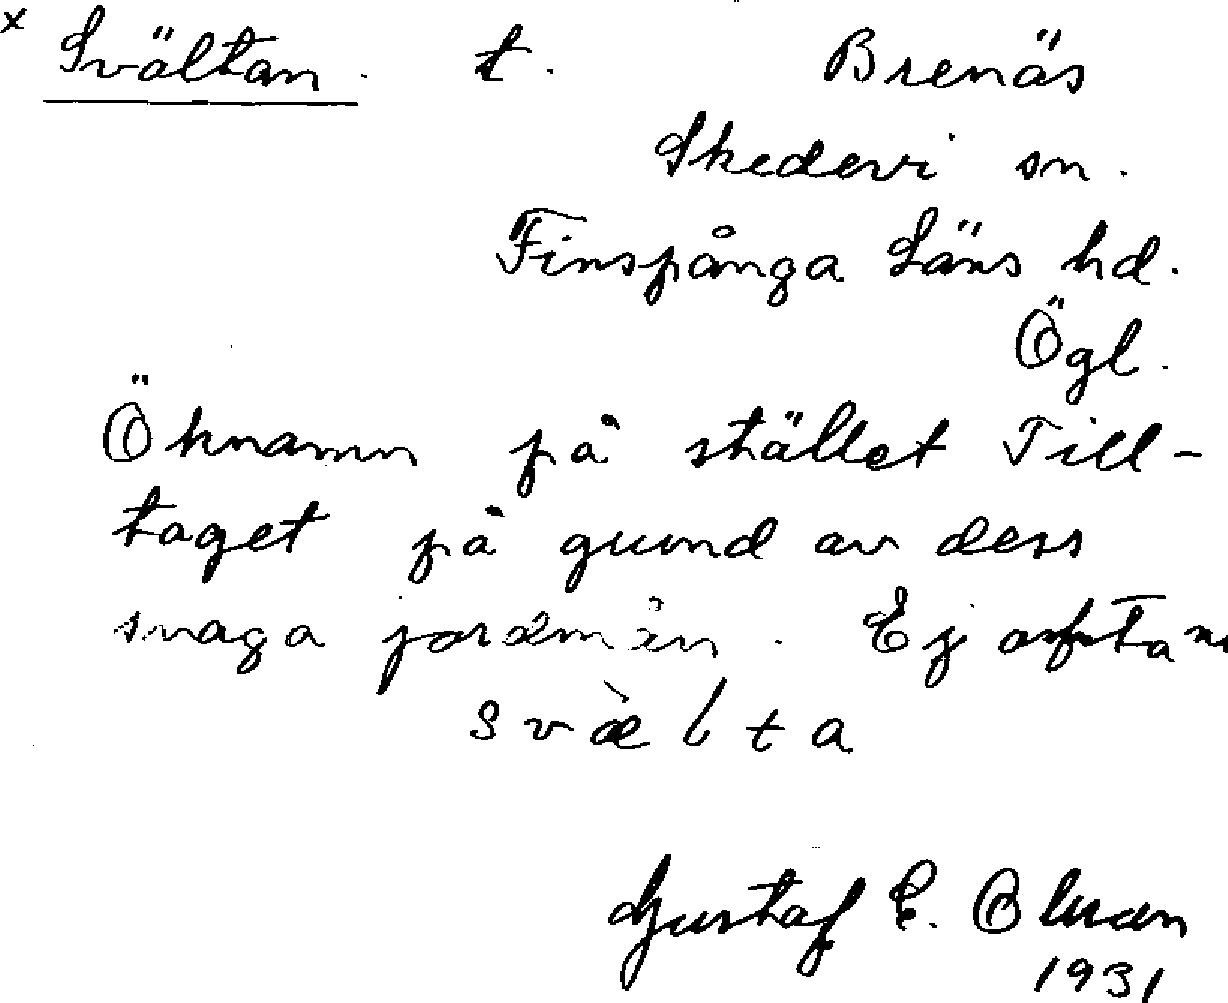 x Svältan. t. Brenäs
Skedevi sn.
Finspånga Läns hd.
Ögl.
Öknamn på stället Till-
taget på grund av dess
svaga jordmån. Ej oftans
svæ̀lta
Gustaf E. Olsson
1931